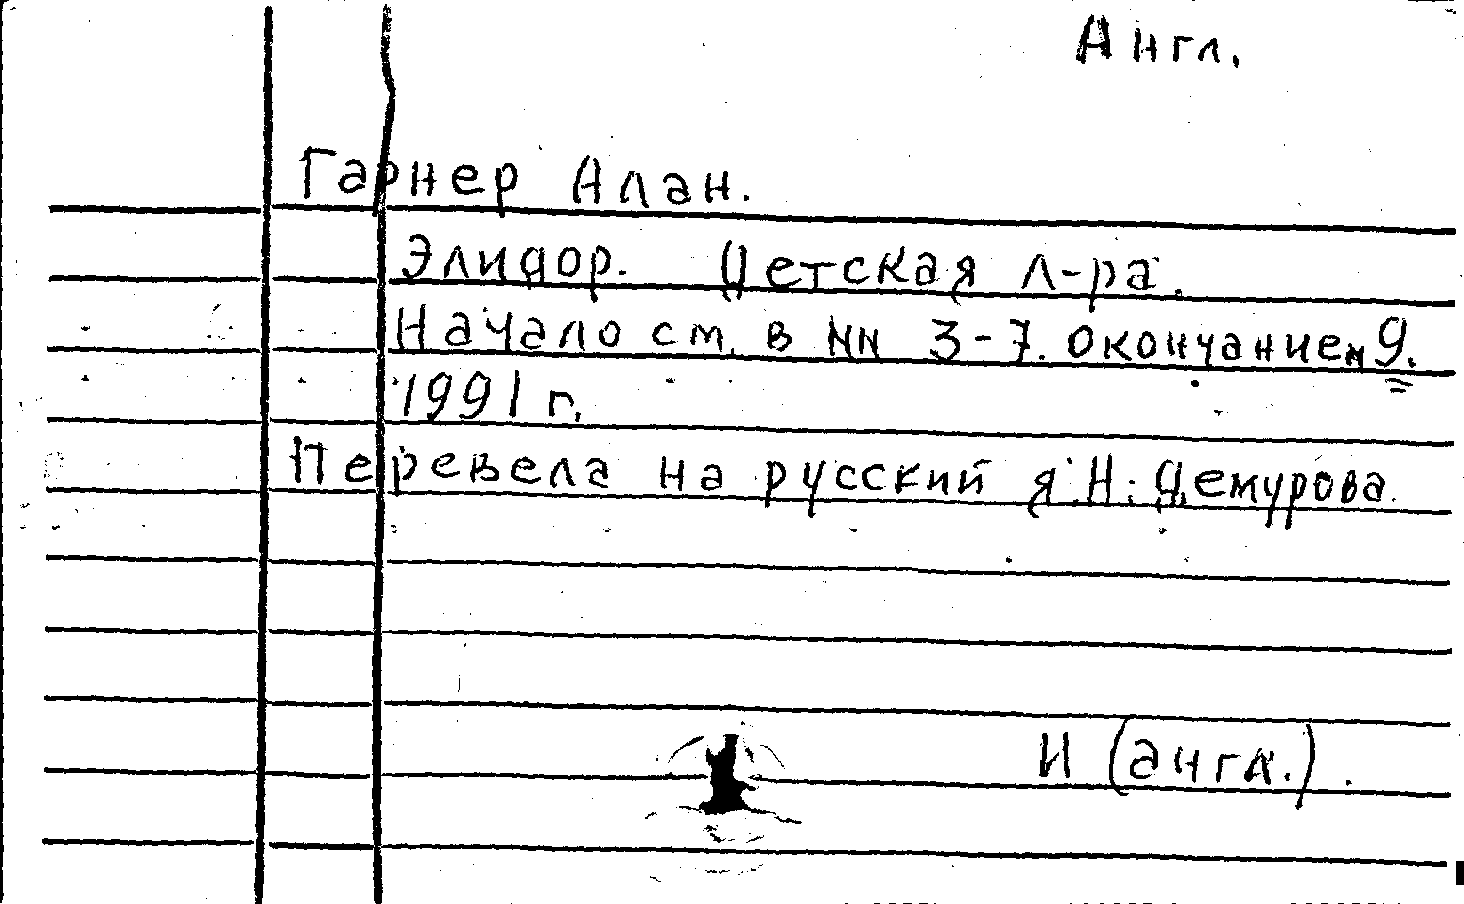 Англ.
Гарнер Алан.
Элидор. Детская л-ра.
Начало см. в NN 3-7. Окончание N 9.
1991 г.
Перевела на русский я. Н. Демурова.
И (англ.).